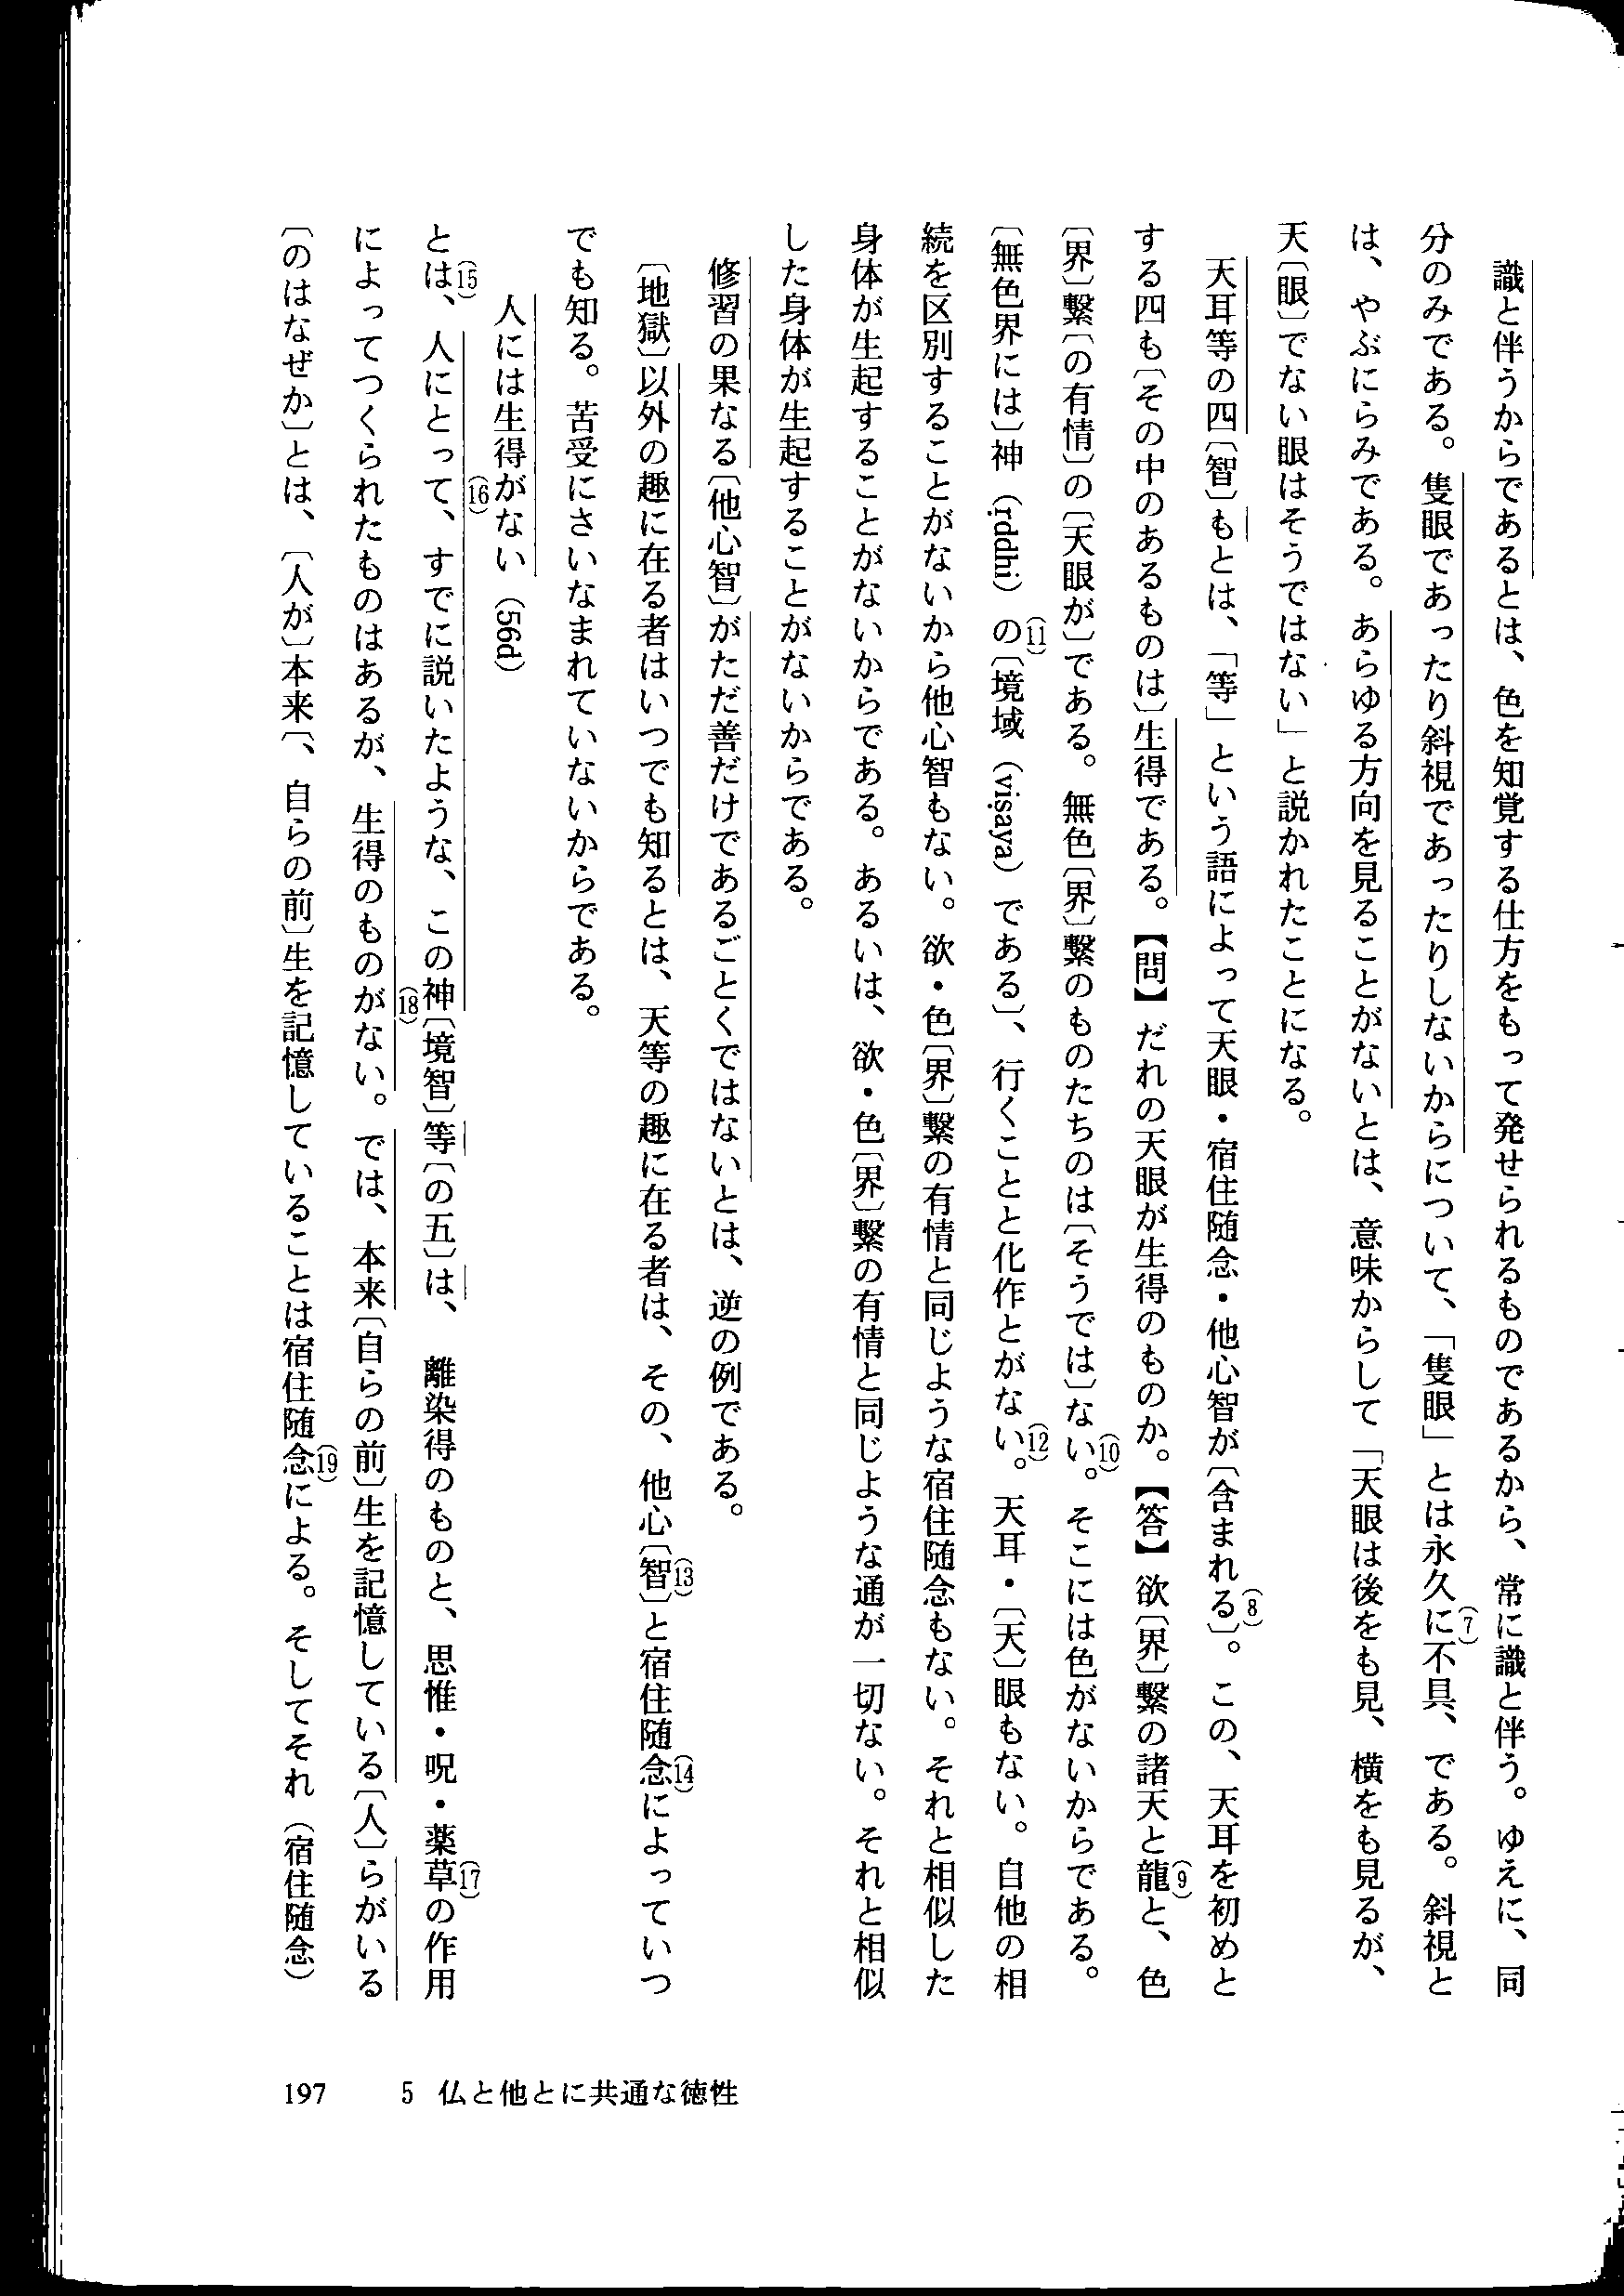 識と伴うからであるとは、色を知覚する仕方をもって発せられるものであるから、常に識と伴う。ゆえに、同
分のみである。隻眼であったり斜視であったりしないからについて、「隻眼」とは永久に(7)不具、である。斜視と
は、やぶにらみである。あらゆる方向を見ることがないとは、意味からして「天眼は後をも見、横をも見るが、
天〔眼〕でない眼はそうではない」と説かれたことになる。
天耳等の四〔智〕もとは、「等」という語によって天眼・宿住随念・他心智が〔含まれる(8)〕。この、天耳を初めと
する四も〔その中のあるものは〕生得である。【問】だれの天眼が生得のものか。【答】欲〔界〕繋の諸天と龍(9)と、色
〔界〕繋〔の有情〕の〔天眼が〕である。無色〔界〕繋のものたちのは〔そうでは〕ない(10)。そこには色がないからである。
〔無色界には〕神(ṛddhi)の(11)〔境域(viṣaya)である〕、行くことと化作とがない(12)。天耳・〔天〕眼もない。自他の相
続を区別することがないから他心智もない。欲・色〔界〕繋の有情と同じような宿住随念もない。それと相似した
身体が生起することがないからである。あるいは、欲・色〔界〕繋の有情と同じような通が一切ない。それと相似
した身体が生起することがないからである。
修習の果なる〔他心智〕がただ善だけであるごとくではないとは、逆の例である。
〔地獄〕以外の趣に在る者はいつでも知るとは、天等の趣に在る者は、その、他心〔智(13)〕と宿住随念(14)によっていつ
でも知る。苦受にさいなまれていないからである。
人には生得がない(56d)
とは(15)、人にとって(16)、すでに説いたような、この神〔境智〕等〔の五〕は、離染得のものと、思惟・呪・薬草(17)の作用
によってつくられたものはあるが、生得のものがない(18)。では、本来〔自らの前〕生を記憶している〔人〕らがいる
〔のはなぜか〕とは、〔人が〕本来〔、自らの前〕生を記憶していることは宿住随念(19)による。そしてそれ(宿住随念)
197 5 仏と他とに共通な徳性